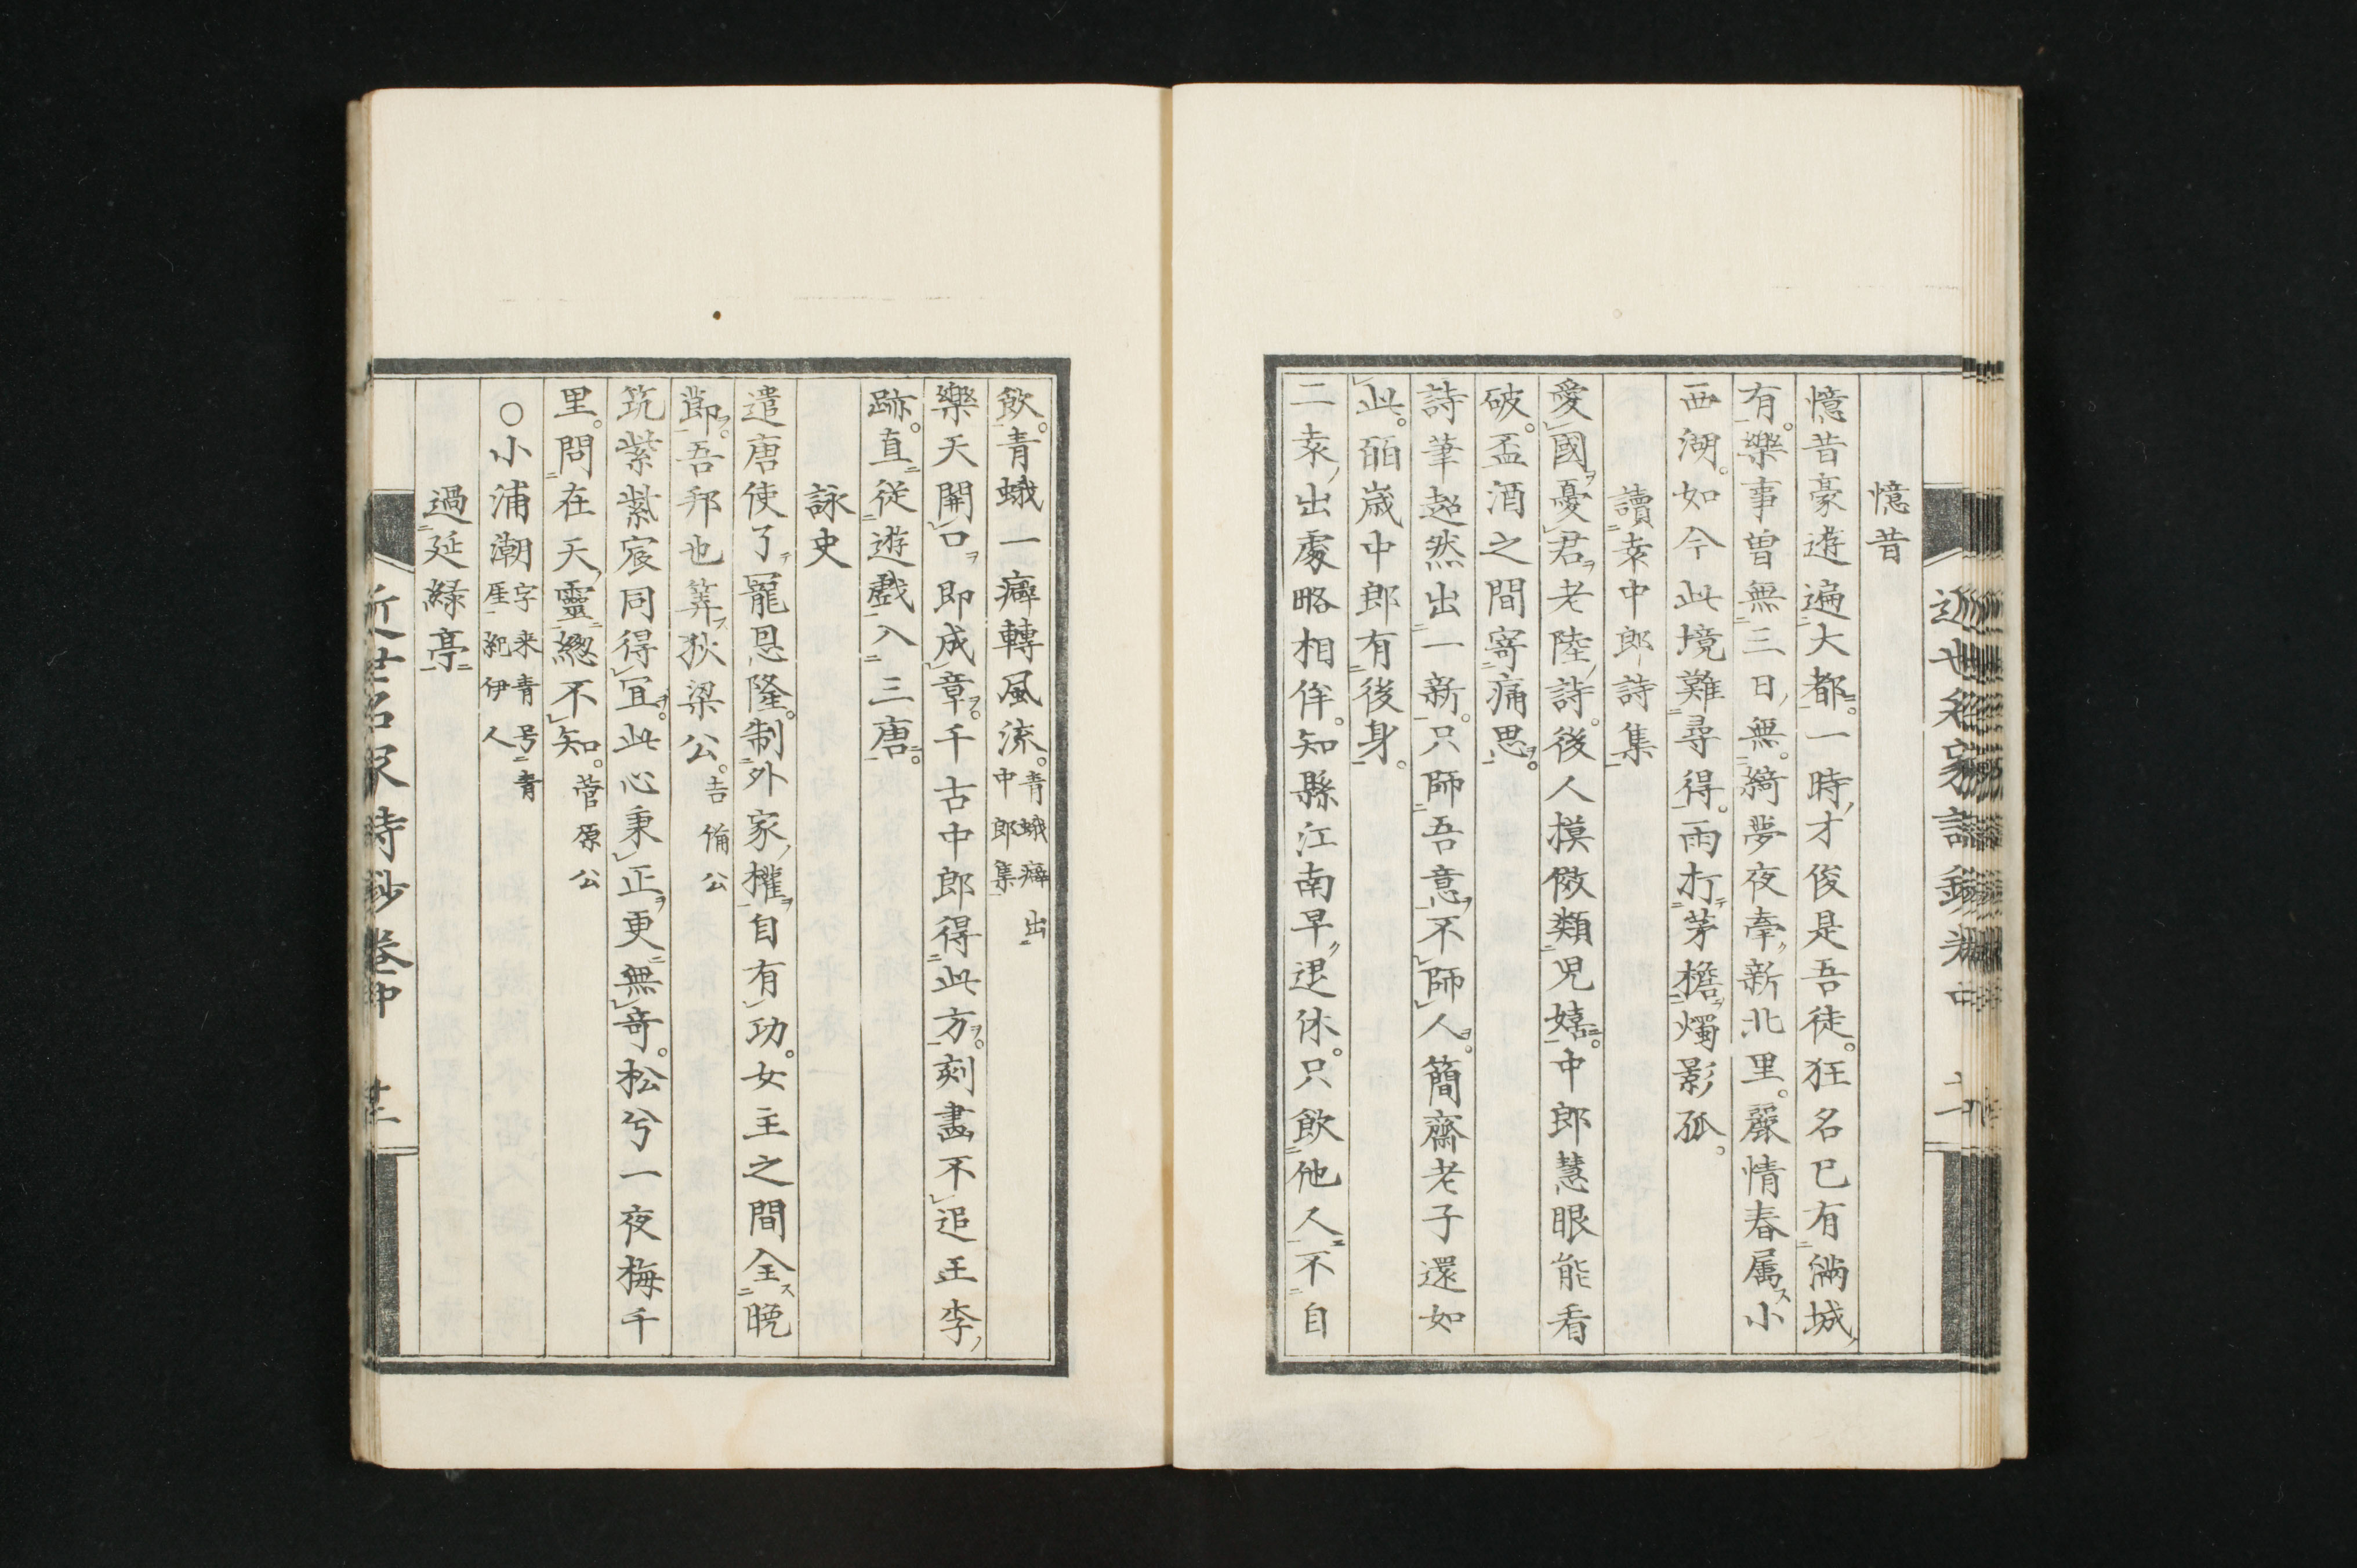 憶昔
憶昔豪遊遍大都。一時才俊是吾徒。狂名已有滿城
有。樂事曾無三日無。綺夢夜牽新北里。麗情春属小
西湖。如今此境難尋得。雨打茅檐燭影孤。
讀袁中郎詩集
愛國憂君老陸詩。後人摸倣類児嬉。中郎慧眼能看
破。盃酒之間寄痛思。
詩筆超然出一新。只師吾意不師人。簡齋老子還如
此。百歳中郎有後身。
二袁出處略相侔。知縣江南早退休。只飲他人不自
飲。青蛾一癖轉風流。青蛾癖出中郎集
樂天開口即成章。千古中郎得此方。刻畫不追王李
跡。直従遊戲入三唐。
詠史
遣唐使了寵恩隆。制外家權自有功。女主之間全晩
節。吾邦也筭狄梁公。吉備公
筑紫紫宸同得冝。此心秉正更無奇。松兮一夜梅千
里。問在天靈總不知。菅原公
○小浦潮字来青号青厓紀伊人
過延緑亭
近世名家詩鈔卷中